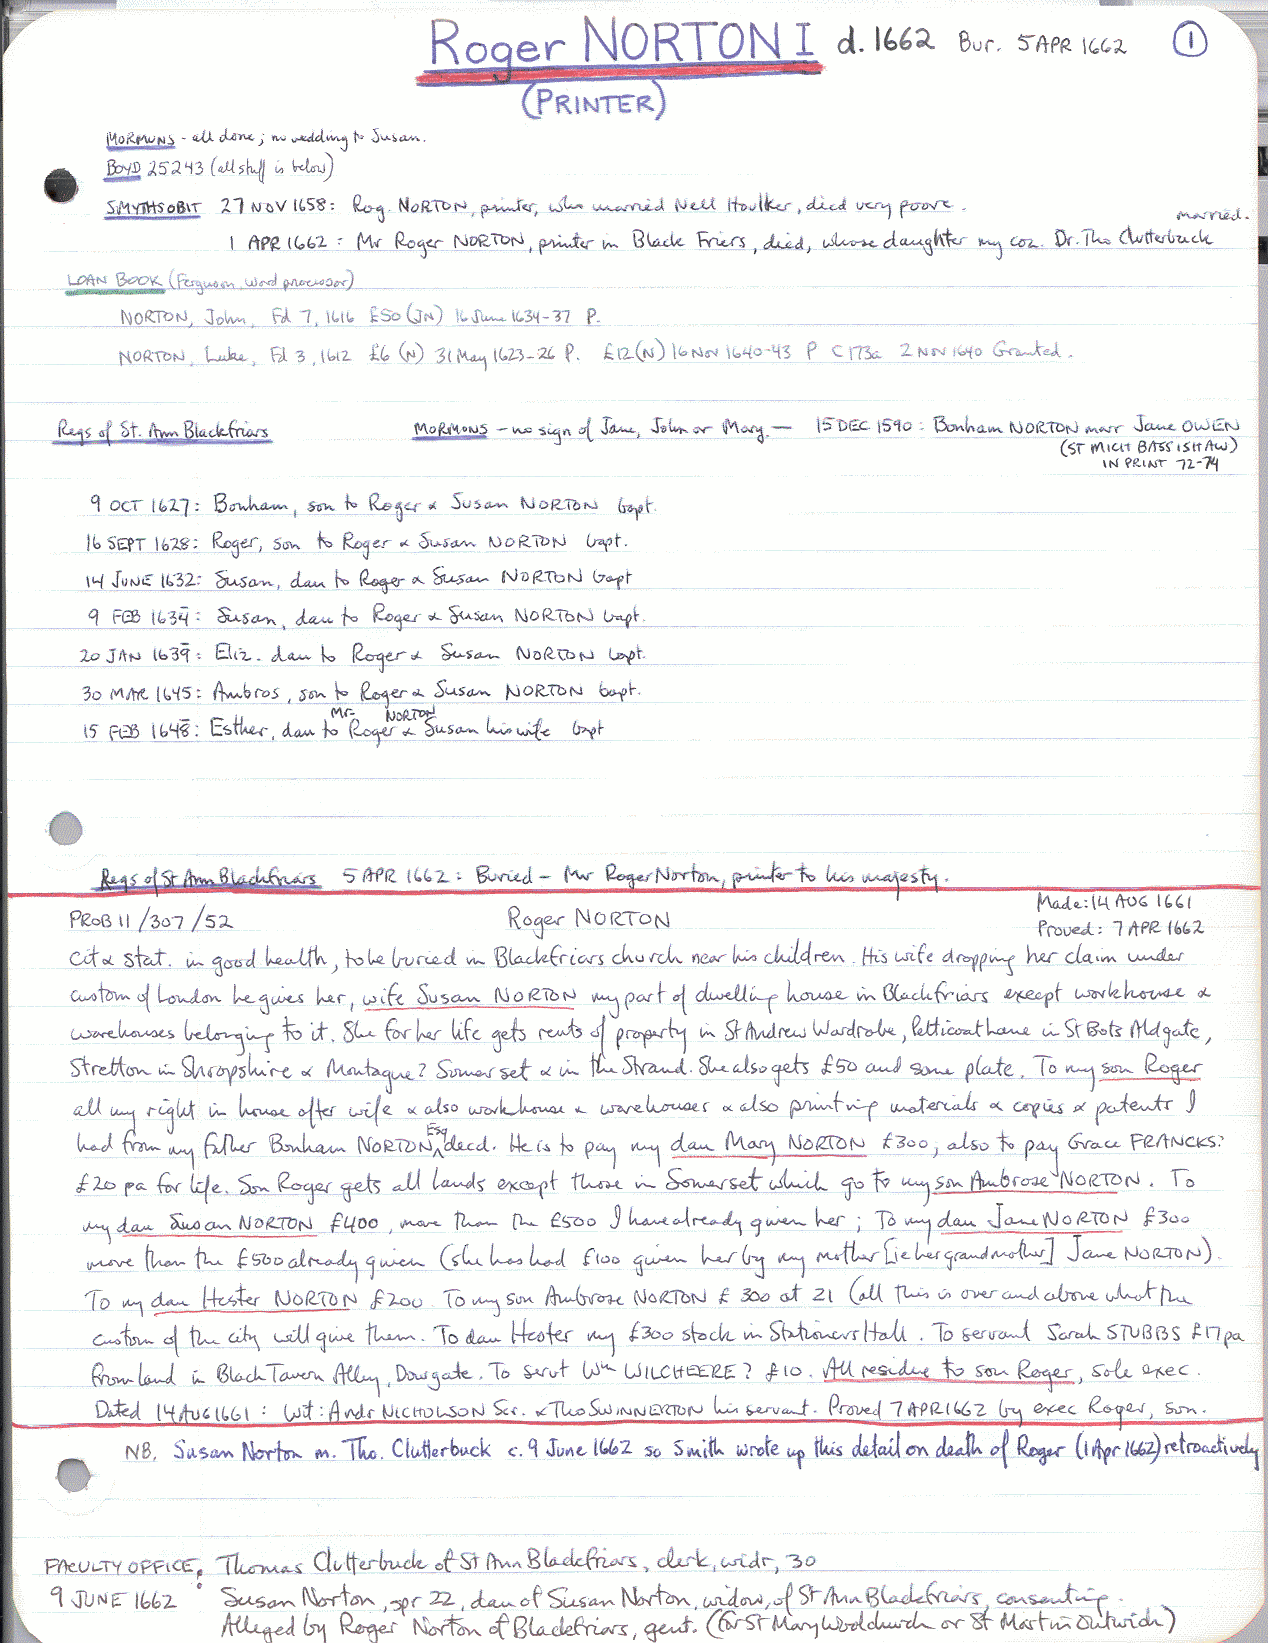 Roger NORTON I d.1662 Bur. 5 APR 1662 1
(PRINTER)
MORMONS - all done; no wedding to Susan.
BOYD 25243 (all stuff is below)
SMYTHSOBIT 27 NOV 1658: Rog. NORTON, printer, who married Nell Houlker, died very poore.
married.
1 APR 1662: Mr Roger NORTON, printer in Black Friers, died, whose daughter my coz. Dr. Tho Clutterbuck
LOAN BOOK (Ferguson, word processor)
NORTON, John, Fd 7, 1616 £50 (JN) 16 June 1634-37 P.
NORTON, Luke, Fd 3, 1612 £6 (N) 31 May 1623-26 P. £12 (N) 16 Nov 1640-43 P C173a 2 NOV 1640 Granted.
Regs of St. Ann Blackfriars MORMONS - no sign of Jane, John or Mary. - 15 DEC 1590: Bonham NORTON marr Jane OWEN
(ST MICH BASSISHAW)
IN PRINT 72-74
9 OCT 1627: Bonham, son to Roger & Susan NORTON bapt.
16 SEPT 1628: Roger, son to Roger & Susan NORTON bapt.
14 JUNE 1632: Susan, dau to Roger & Susan NORTON bapt
9 FEB 1634: Susan, dau to Roger & Susan NORTON bapt.
20 JAN 1639: Eliz. dau to Roger & Susan NORTON bapt.
30 MAR 1645: Ambros, son to Roger & Susan NORTON bapt.
Mr. NORTON
15 FEB 1648: Esther, dau to Roger & Susan his wife bapt
Regs of St Ann Blackfriars 5 APR 1662: Buried - Mr Roger Norton, printer to his majesty.
Made: 14 AUG 1661
PROB 11/307/52 Roger NORTON Proved: 7 APR 1662
Cit & Stat. in good health, to be buried in Blackfriars church near his children. His wife dropping her claim under
custom of London he gives her, wife Susan NORTON my part of dwelling house in Blackfriars except workhouse &
warehouses belonging to it. She for her life gets rents of property in St Andrew Wardrobe, Petticoat Lane in St Bots Aldgate,
Stretton in Shropshire & Montague? Somerset & in the Strand. She also gets £50 and some plate. To my son Roger
all my right in house after wife & also workhouse & warehouses & also printing materials & copies & patents I
had from my father Bonham NORTON Esq decd. He is to pay my dau Mary NORTON £300, also to pay Grace FRANCKS?
£20 pa for life. Son Roger gets all lands except those in Somerset which go to my son Ambrose NORTON. To
my dau Susan NORTON £400, more than the £500 I have already given her; To my dau Jane NORTON £300
more than the £500 already given (she has had £100 given her by my mother [ie her grandmother] Jane NORTON).
To my dau Hester NORTON £200. To my son Ambrose NORTON £300 at 21 (all this is over and above what the
custom of the city will give them. To dau Hester my £300 stock in Stationers Hall. To servant Sarah STUBBS £17 pa
from land in Black Tavern Alley, Dowgate. To servt Wm WILCHEERE? £10. All residue to son Roger, sole exec.
Dated 14 AUG 1661: Wit: Andr NICHOLSON Scr. & Tho SWINNERTON his servant. Proved 7 APR 1662 by exec Roger, son.
NB. Susan Norton m. Tho. Clutterbuck c. 9 June 1662 so Smith wrote up this detail on death of Roger (1 Apr 1662) retroactively
FACULTY OFFICE: Thomas Clutterbuck of St Ann Blackfriars, clerk, widr, 30
9 JUNE 1662 Susan Norton, spr 22, dau of Susan Norton, widow, of St Ann Blackfriars, consenting.
Alleged by Roger Norton of Blackfriars, gent. (for St Mary Woolchurch or St Martin Outwich)